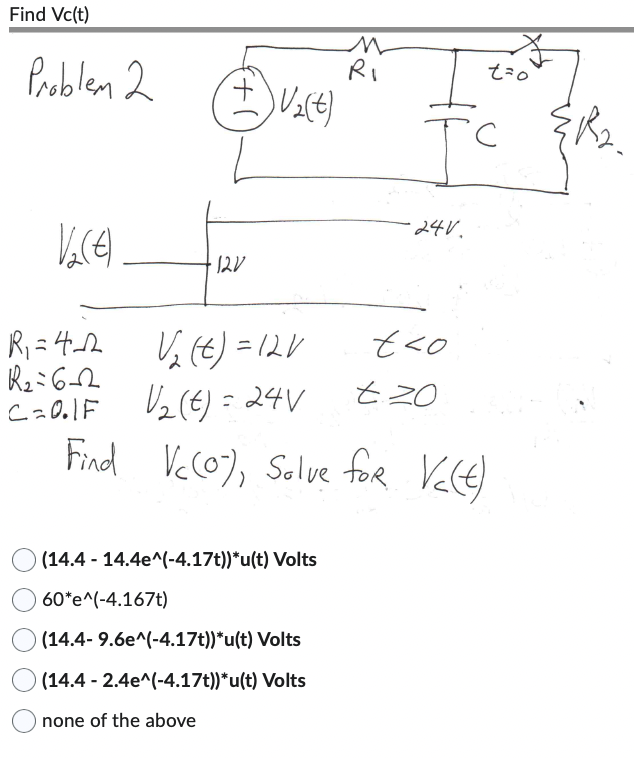 Find Vc(t)
Problem 2
R1
t=0
+
V2(t)
C
R2.
24V.
V2(t)
12V
R1=4Ω V2(t)=12V t<0
R2=6Ω
C=0.1F V2(t)=24V t≥0
Find Vc(0-), Solve for Vc(t)
(14.4 - 14.4e^(-4.17t))*u(t) Volts
60*e^(-4.167t)
(14.4- 9.6e^(-4.17t))*u(t) Volts
(14.4 - 2.4e^(-4.17t))*u(t) Volts
none of the above